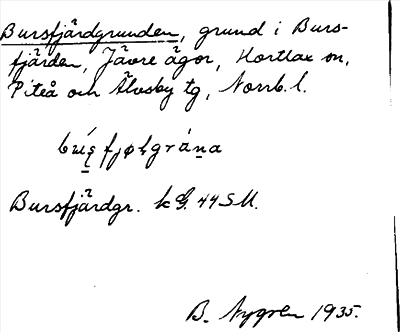 Bursfjärdgrunden, grund i Burs-
fjärden, Jävre ägor, Hortlax sn,
Piteå och Älvsby tg, Norrb. l.
Bursfjärdgr. k 44 SU.
B. Nygren 1935.